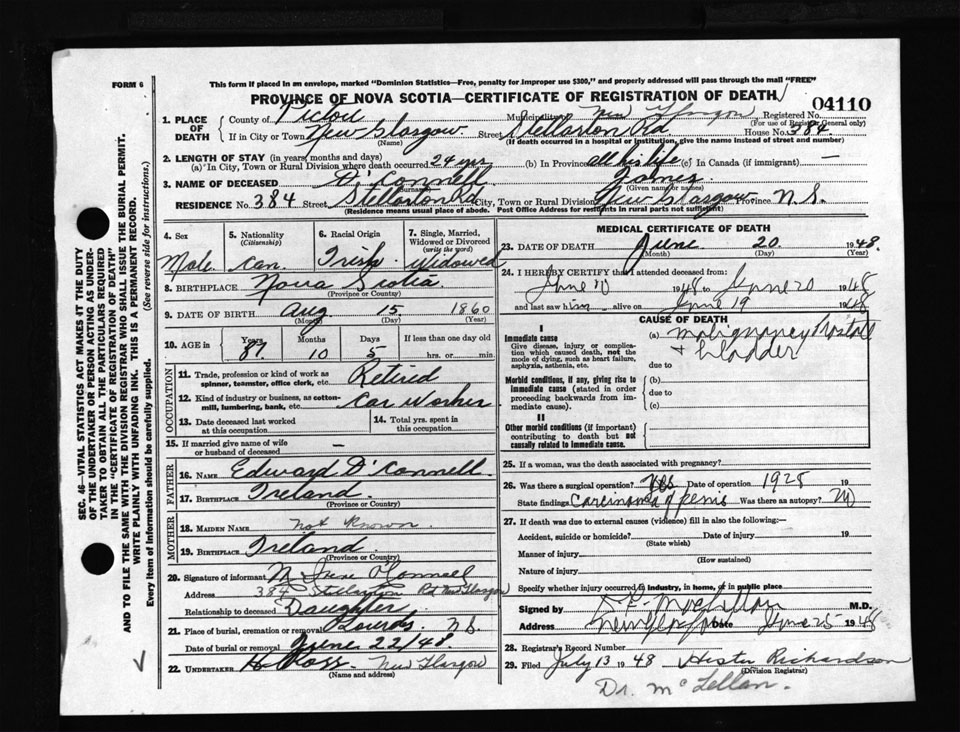 FORM 6
This form if placed in an envelope, marked "Dominion Statistics—Free, penalty for improper use $300," and properly addressed will pass through the mail "FREE"
PROVINCE OF NOVA SCOTIA—CERTIFICATE OF REGISTRATION OF DEATH
04110
1. PLACE OF DEATH
County of Pictou Municipality New Glasgow Registered No.
(For use of Registrar General only)
If in City or Town New Glasgow Street Stellarton Rd House No. 384
(Name) (If death occurred in a hospital or institution, give the name instead of street and number)
2. LENGTH OF STAY (in years, months and days)
(a) In City, Town or Rural Division where death occurred 24 yrs (b) In Province all his life (c) In Canada (if immigrant) —
3. NAME OF DECEASED O'Connell James
(Surname) (Given name or names)
RESIDENCE No. 384 Street Stellarton Rd City, Town or Rural Division New Glasgow Province N.S.
(Residence means usual place of abode. Post Office Address for residents in rural parts not sufficient)
4. Sex Male
5. Nationality (Citizenship) Can.
6. Racial Origin Irish
7. Single, Married, Widowed or Divorced (write the word) Widowed
8. BIRTHPLACE Nova Scotia
(Province or Country)
9. DATE OF BIRTH Aug 15 1860
(Month) (Day) (Year)
10. AGE in Years Months Days If less than one day old
87 10 5 hrs. or min.
OCCUPATION
11. Trade, profession or kind of work as spinner, teamster, office clerk, etc. Retired
12. Kind of industry or business, as cotton-mill, lumbering, bank, etc. Car Worker
13. Date deceased last worked at this occupation
14. Total yrs. spent in this occupation
15. If married give name of wife or husband of deceased —
FATHER
16. NAME Edward O'Connell
17. BIRTHPLACE Ireland
(Province or Country)
MOTHER
18. MAIDEN NAME not known
19. BIRTHPLACE Ireland
(Province or Country)
20. Signature of informant M June O'Connell
Address 384 Stellarton Rd New Glasgow
Relationship to deceased Daughter
21. Place of burial, cremation or removal Lourdes N.S.
Date of burial or removal June 22/48
22. UNDERTAKER H Ross New Glasgow
(Name and address)
MEDICAL CERTIFICATE OF DEATH
23. DATE OF DEATH June 20 1948
(Month) (Day) (Year)
24. I HEREBY CERTIFY that I attended deceased from:
June 10 1948 to June 20 1948
and last saw him alive on June 19 1948
CAUSE OF DEATH
I
Immediate cause
Give disease, injury or complication which caused death, not the mode of dying, such as heart failure, asphyxia, asthenia, etc.
(a) Malignancy Prostate
+ bladder
due to
Morbid conditions, if any, giving rise to immediate cause (stated in order proceeding backwards from immediate cause).
(b)
due to
(c)
II
Other morbid conditions (if important) contributing to death but not causally related to immediate cause.
25. If a woman, was the death associated with pregnancy?
26. Was there a surgical operation? Yes Date of operation 1928 19
State findings Carcinoma of penis Was there an autopsy? No
27. If death was due to external causes (violence) fill in also the following:—
Accident, suicide or homicide? Date of injury 19
(State which)
Manner of injury
(How sustained)
Nature of injury
Specify whether injury occurred in industry, in home, or in public place
Signed by M.D.
Address New Glasgow Date June 25 1948
28. Registrar's Record Number
29. Filed July 13 1948 Hester Richardson
(Division Registrar)
Dr. McLellan.
SEC. 46—VITAL STATISTICS ACT MAKES IT THE DUTY
OF THE UNDERTAKER OR PERSON ACTING AS UNDER-
TAKER TO OBTAIN ALL THE PARTICULARS REQUIRED
IN THE "CERTIFICATE OF REGISTRATION OF DEATH"
AND TO FILE THE SAME WITH THE DIVISION REGISTRAR WHO SHALL ISSUE THE BURIAL PERMIT.
WRITE PLAINLY WITH UNFADING INK. THIS IS A PERMANENT RECORD.
Every item of information should be carefully supplied. (See reverse side for instructions.)